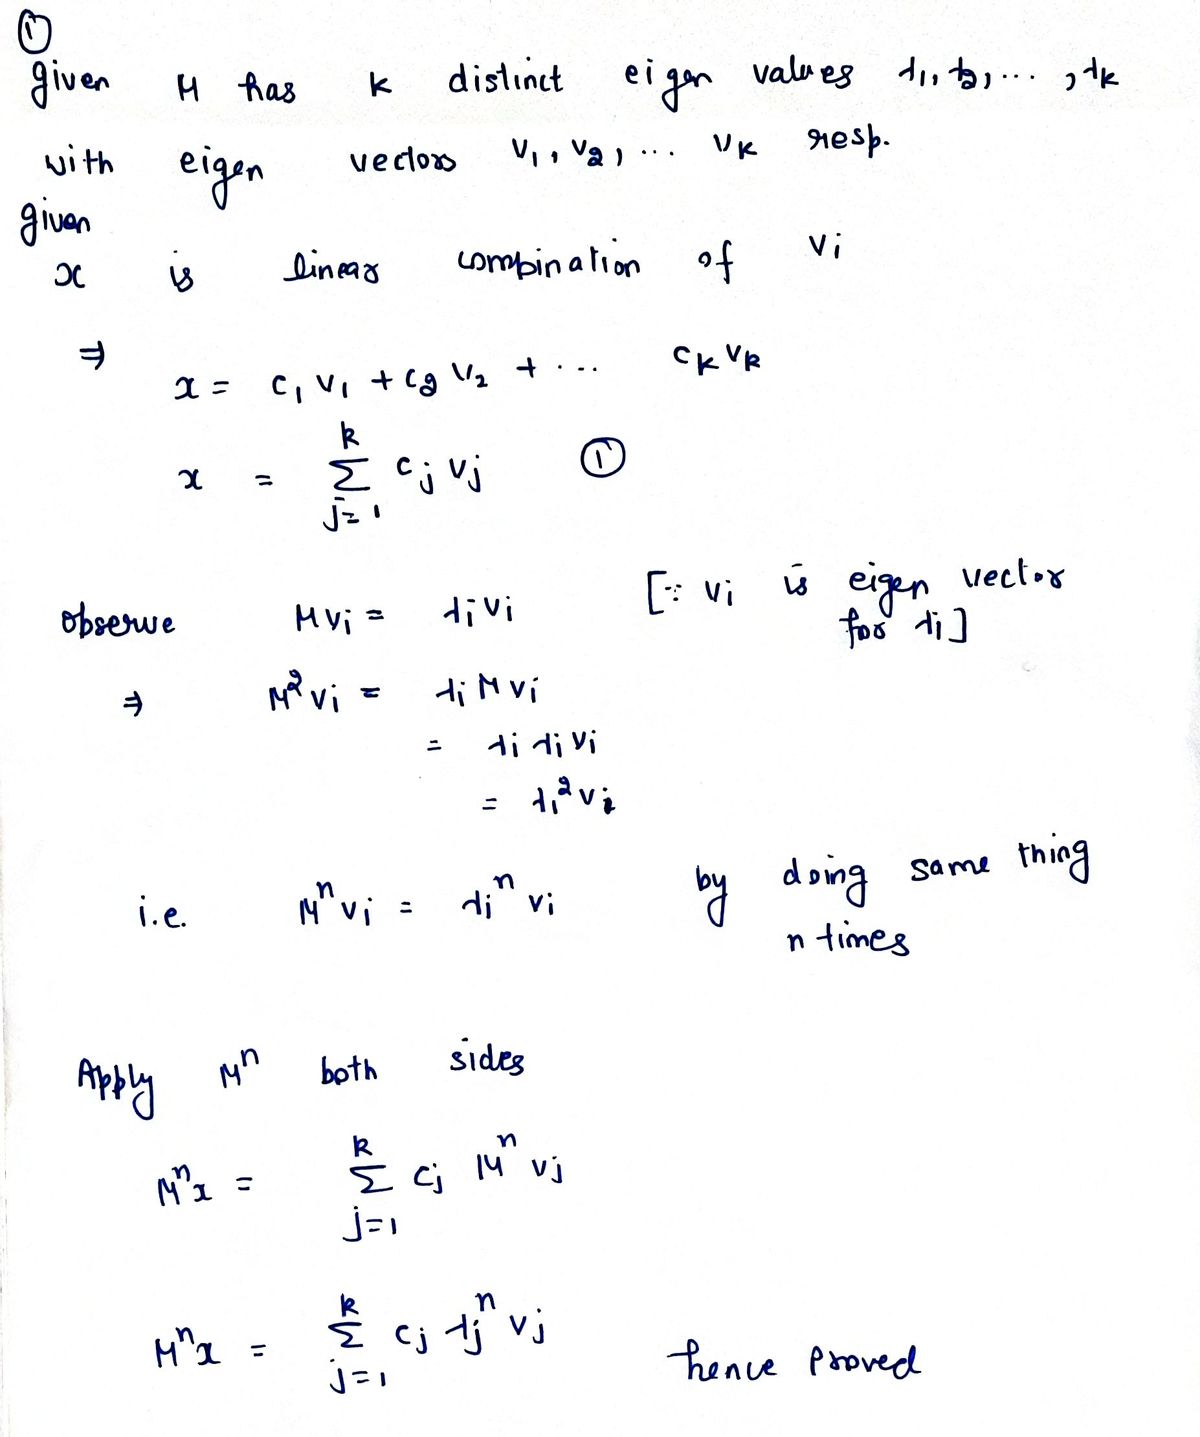 ①
given M has k distinct eigen values λ₁, λ₂, ... , λk
with eigen vectors v₁, v₂, ... vk resp.
given
x is linear combination of vi
⇒ x = c₁ v₁ + c₂ v₂ + ... ck vk
x = ∑_{j=1}^{k} cj vj ①
observe Mvi = λi vi [∵ vi is eigen vector
for λi]
⇒ M² vi = λi M vi
= λi λi vi
= λi² vi
i.e. Mⁿ vi = λiⁿ vi by doing same thing
n times
Apply Mⁿ both sides
Mⁿx = ∑_{j=1}^{k} cj Mⁿ vj
Mⁿx = ∑_{j=1}^{k} cj λjⁿ vj hence proved